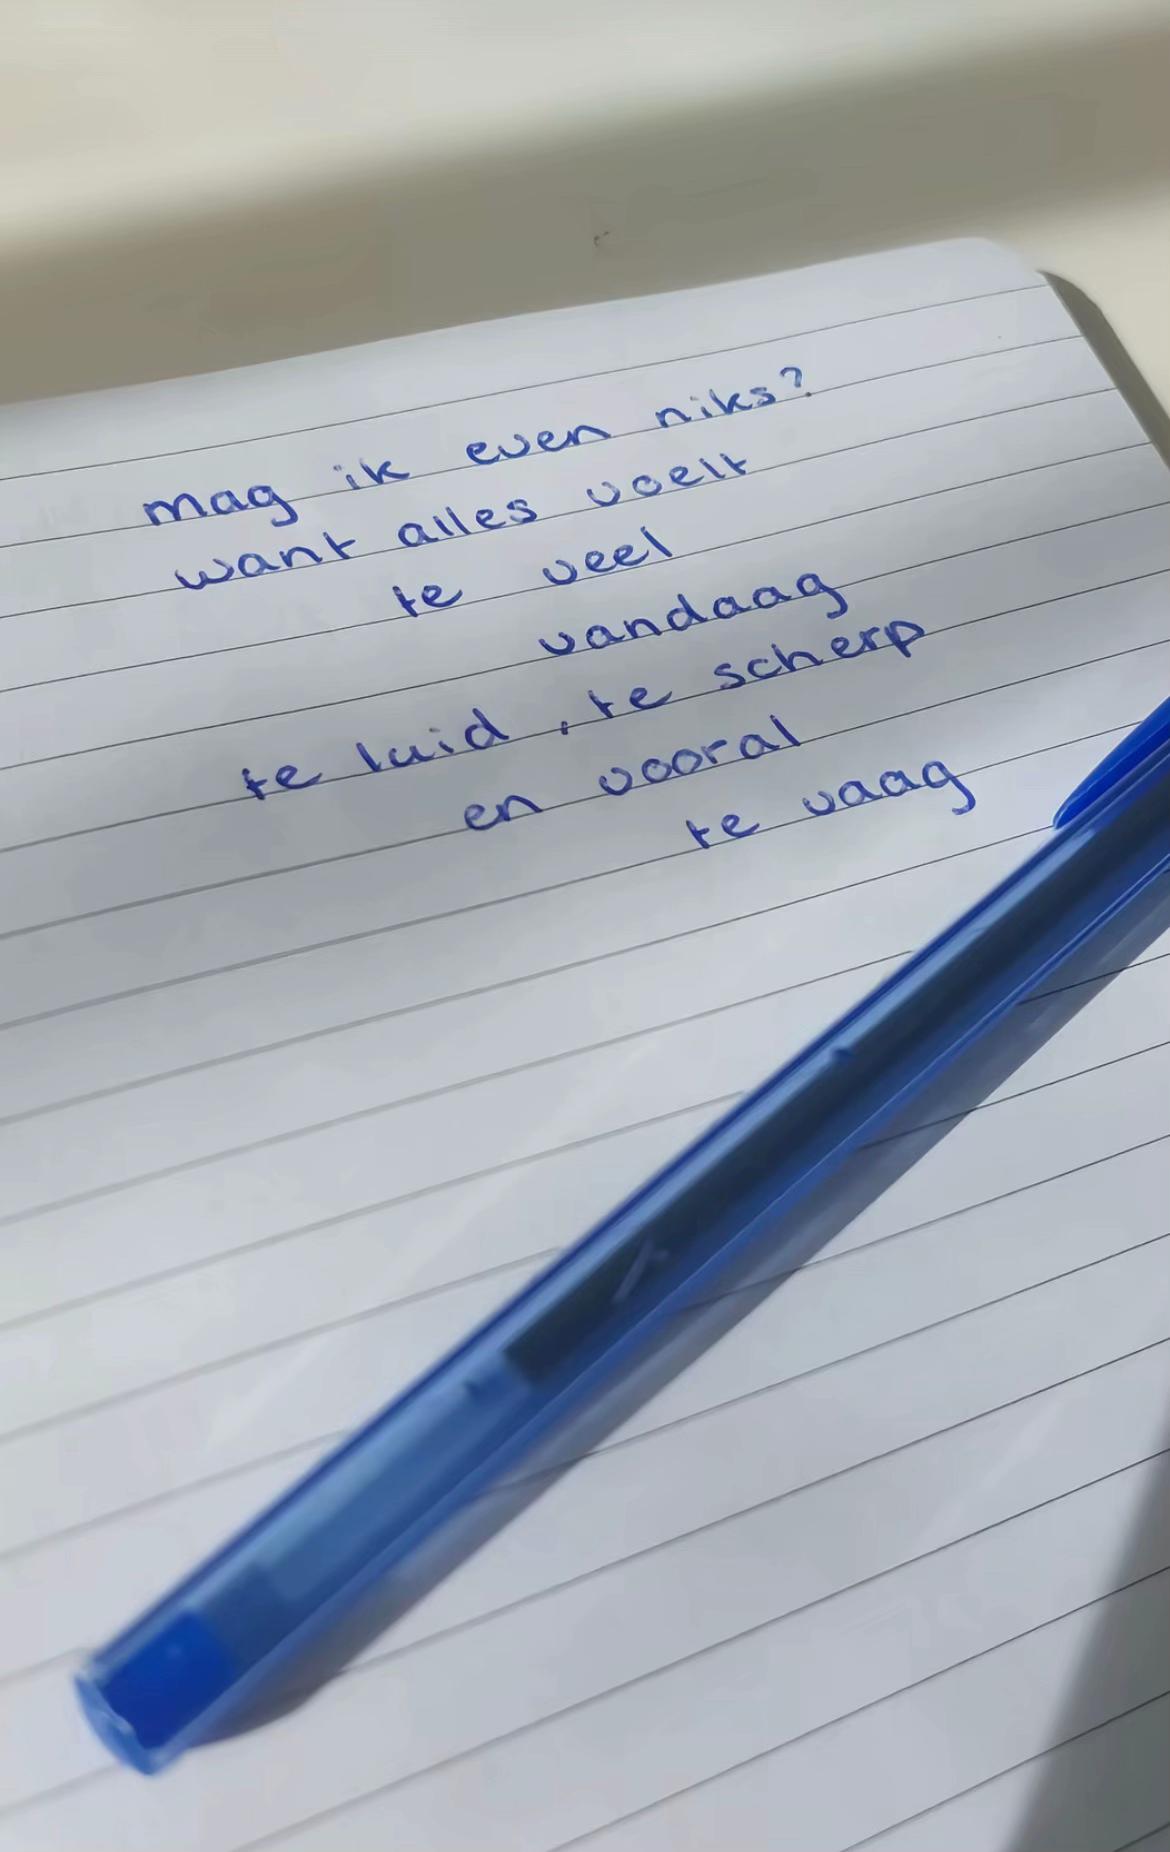 mag ik even niks?
want alles voelt
te veel
vandaag
te luid, te scherp
en vooral
te vaag